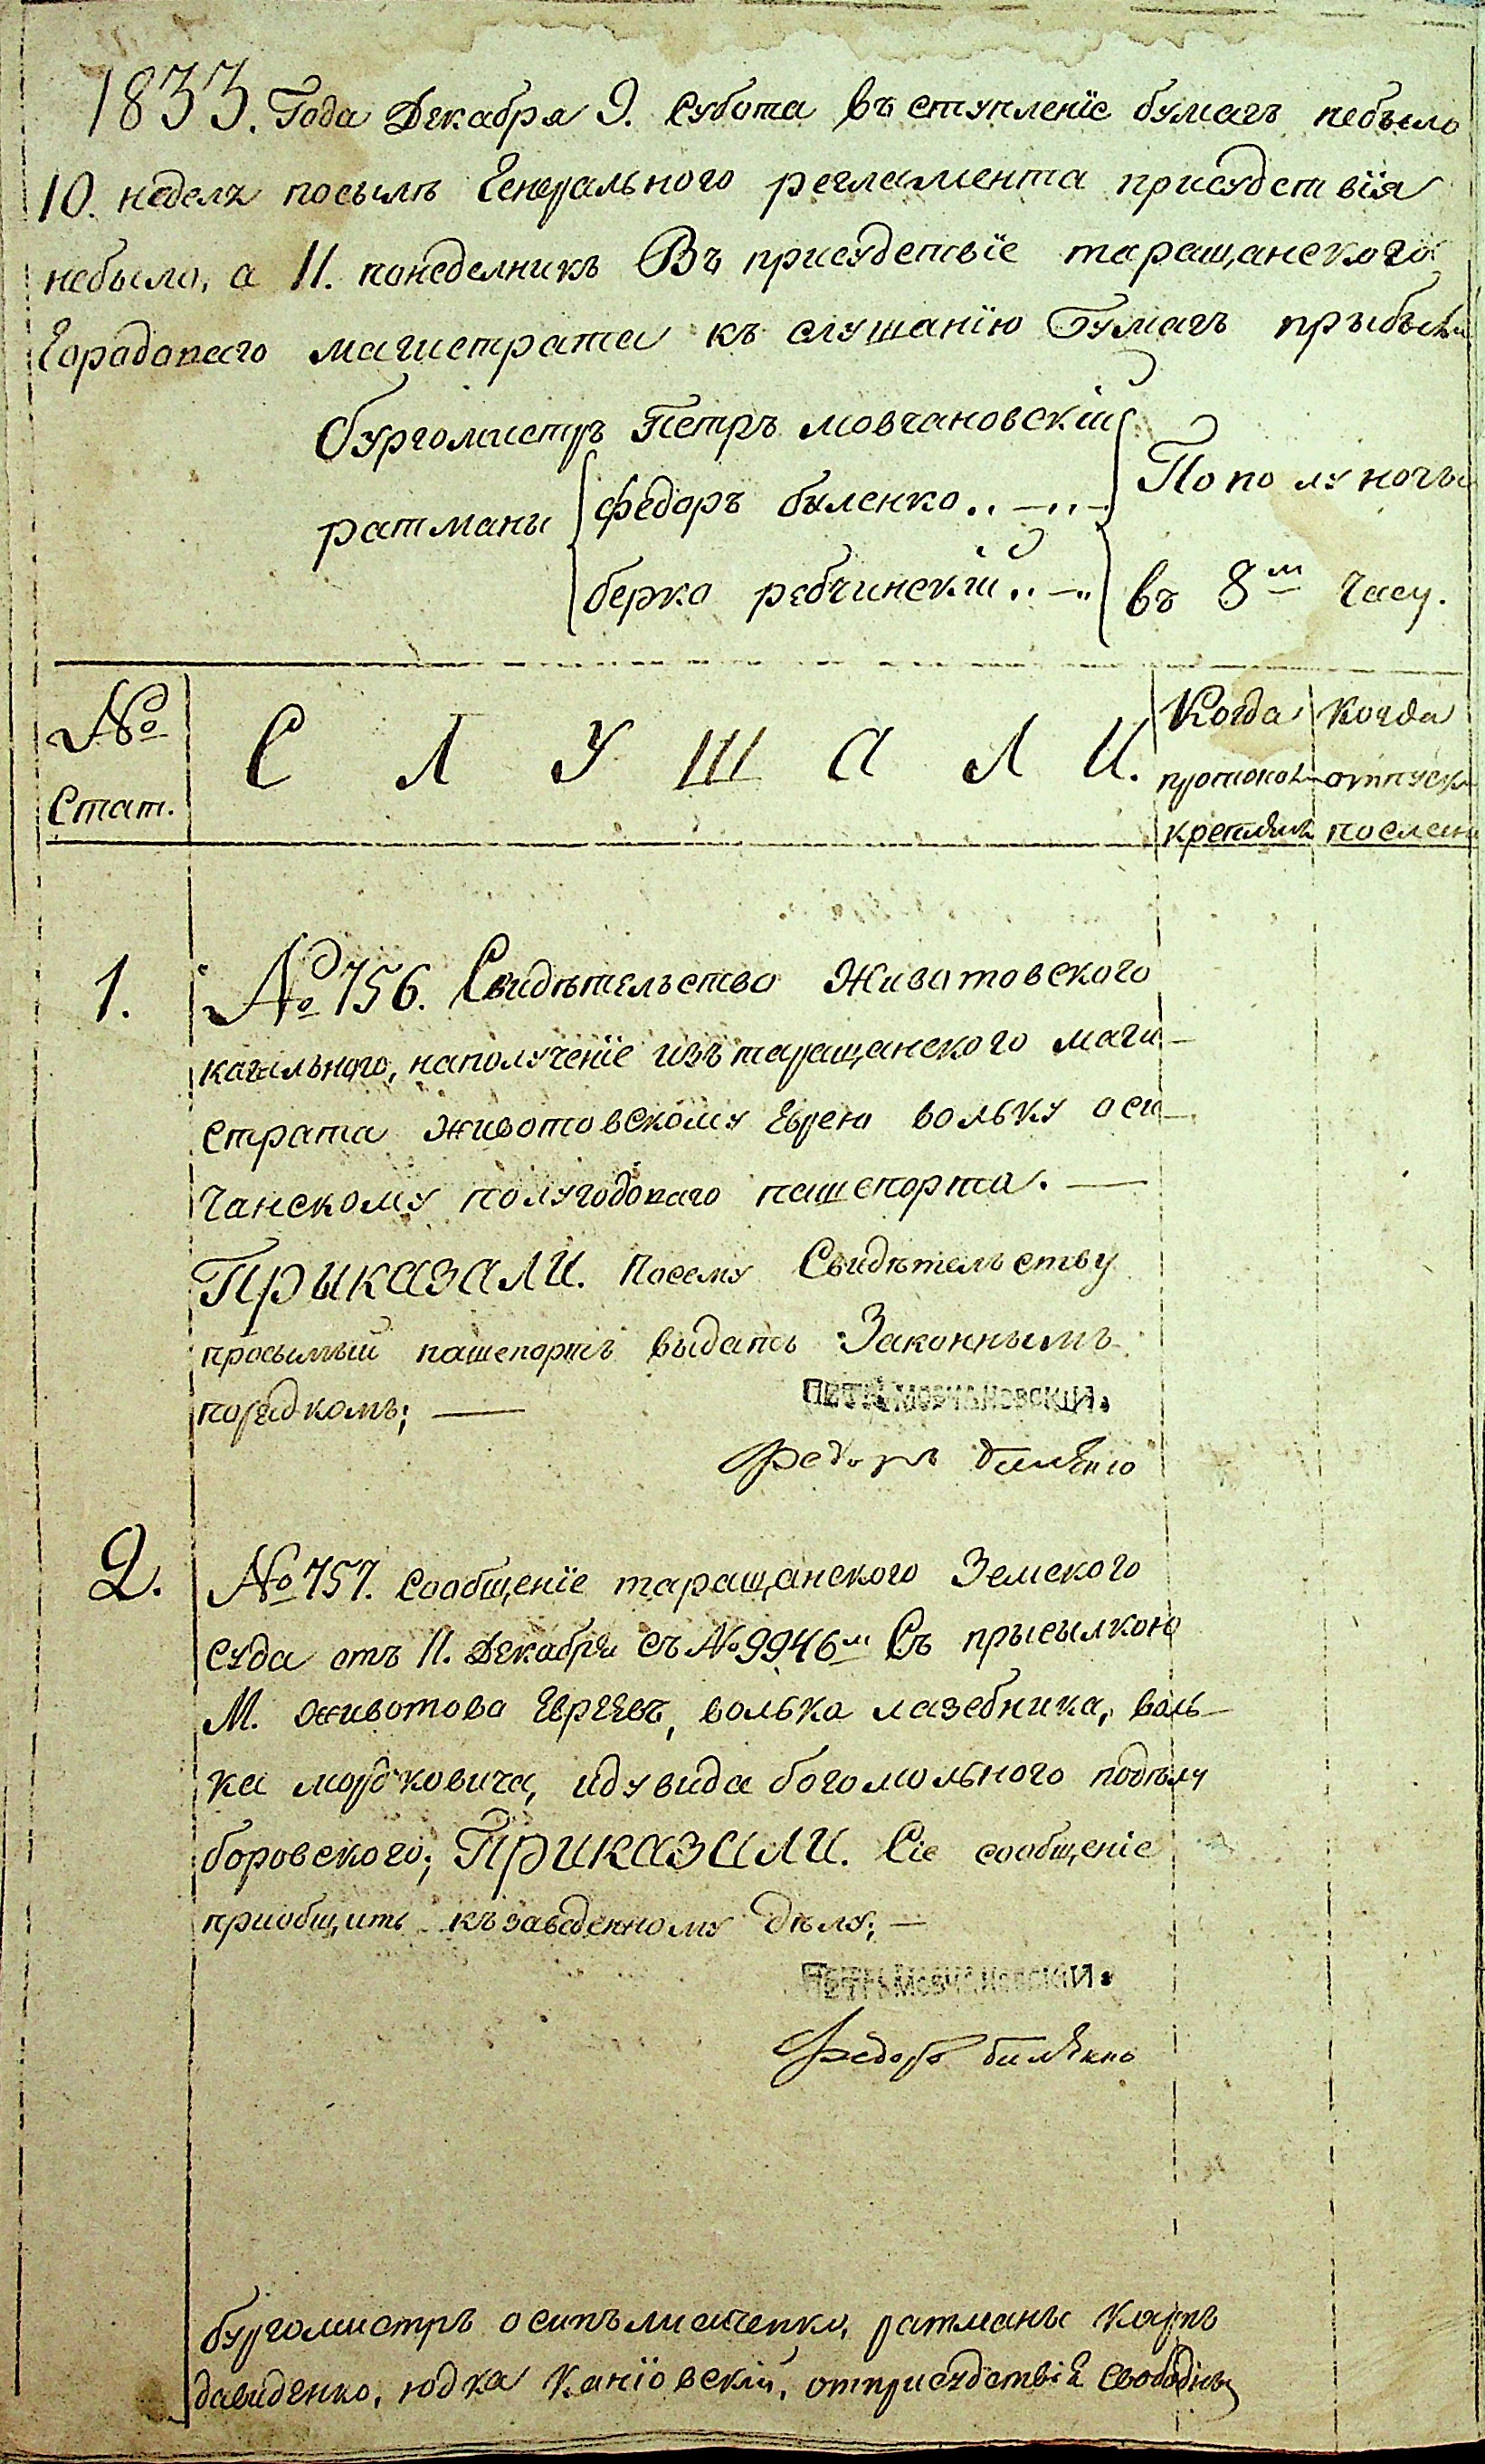 1833. Года Декабря 9. субота въ ступленіе бумагъ небыло
10. неделя посылѣ Генерального регламента присудствія
небыло, а 11. понеделникъ Въ присудствіе таращанского
Городоваго магистрата къ слушанію Бумагъ прыбыли
бургомистръ Петръ мовчановскій
ратманы федоръ быленко.. —..— По полуночы
берко рабчинскій.. —.. въ 8м часу.
№ С Л У Ш А Л И. Когда Когда
протокол отпуск
Стат.
крепленъ посланъ
1. № 756. Свидѣтельство Животовского
кагального, наполученіе изъ таращанского маги—
страта животовскому Еврею вольку оси—
чанскому полугодоваго пашепорта. —
Прыказали. Посему Свидѣтельству
просымый пашепортъ выдать Законнымъ
порядкомъ; —
Петръ Мовчановскій.
Федоръ билѣнко
2. № 757. сообщеніе таращанского Земского
суда отъ 11. Декабря съ № 9946м Съ прысылкою
М. животова Евреевъ, волька лазебника, воль—
ка мордковича, идувида богомольного подѣлу
боровского; Приказали. Сіе сообщеніе
приобщить къ заведенному дѣлу; —
Петръ Мовчановскій.
Федоръ билѣнко
бургомистръ осипъ ратманы Карпъ
давиденко, юдка Каніовскій, отприсудствія свободны